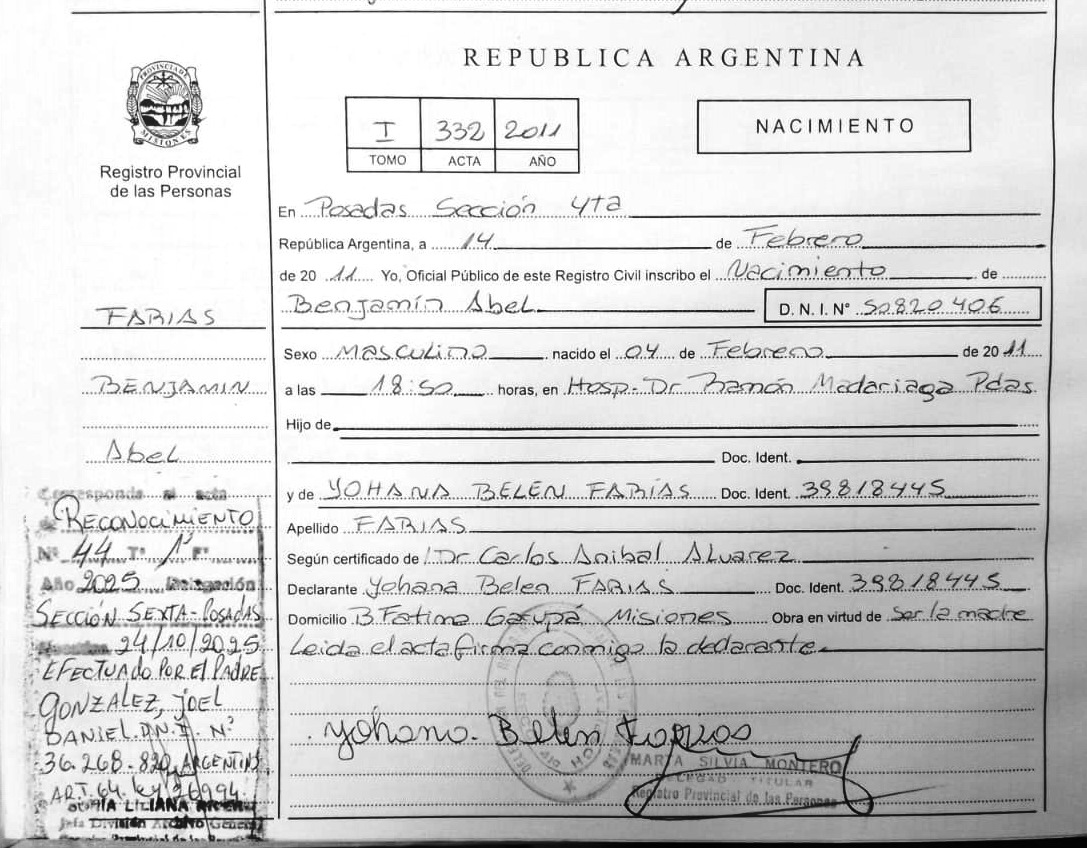 REPUBLICA ARGENTINA
PROVINCIA DE
MISIONES
Registro Provincial
de las Personas
I 332 2011
TOMO ACTA AÑO
NACIMIENTO
En Posadas Sección 4ta
República Argentina, a 14 de Febrero
de 20 11 Yo, Oficial Público de este Registro Civil inscribo el Nacimiento de
Benjamín Abel D.N.I. Nº 50820406
Sexo Masculino nacido el 04 de Febrero de 20 11
a las 18:50 horas, en Hosp. Dr Ramón Madariaga Pdas
Hijo de
Doc. Ident.
y de YOHANA BELÉN FARÍAS Doc. Ident. 39818445
Apellido FARIAS
Según certificado de Dr Carlos Anibal Alvarez
Declarante Yohana Belen FARIAS Doc. Ident. 39818445
Domicilio B Fatima Garupá Misiones Obra en virtud de ser la madre
Leida el acta firma conmigo la declarante
Yohana Belen Farias
MARTA SILVIA MONTERO
TITULAR
Registro Provincial de las Personas
FARIAS
BENJAMIN
Abel
Corresponde al acta
de RECONOCIMIENTO
Nº 44 Tº 1º Fº
Año 2025 Delegación
SECCIÓN SEXTA-POSADAS
24/10/2025
EFECTUADO POR El PADRE
GONZALEZ, JOEL
DANIEL. D.N.I. Nº
36.268.830, ARGENTINO
ART. 64. Ley 26994.
LILIANA
Jefa División Archivo General